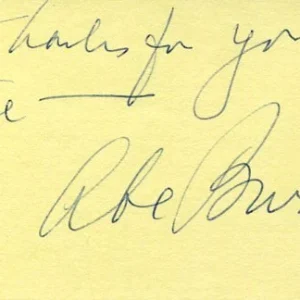 Thanks for yo
e —
Abe Bur